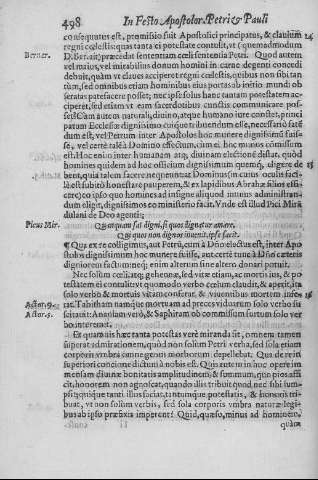 498 In Festo Apostolor. Petri & Pauli
consequutus est, promissio fuit Apostolici principatus, & clauium 14
regni cœlestis: quas tanta ei potestate contulit, vt (quemadmodum
Berner. D. Bernar.) præcedat sententiam cœli sententia Petri. Quod autem
vel maius, vel mirabilius donum homini in carne degenti concedi
debuit, quàm vt claues acciperet regni cœlestis, quibus non sibi tantùm,
sed omnibus etiam hominibus eius portas ab infito mundi
seratas patefacere posset; nec ipse solus hanc tantam potestatem acciperet,
sed etiam vt eam sacerdotibus cunctis communicare posset?
Cùm autem naturali, diuino, atque humano iure constet, principatum
Ecclesiæ dignissimo cuique tribuendum esse, necessariò fatendum
est, vel Petrum inter Apostolos hoc munere dignissimũ fuisse,
vel certè talẽ à Domino effectum, cùm ei hoc munus cõmissum
est. Hoc enim inter humanam atq; diuinam electionẽ distat, quòd
homines quidem ad hoc officium dignissimum quemq; eligere debent, 15
quia talem facere nequeunt: at Dominus (in cuius oculis facilè
est subitò honestare pauperem, & ex lapidibus Abrahæ filios efficere)
eo ipso quo homines ad insigne aliquod munus administrandum
eligit, dignissimos eo ministerio facit. Vnde est illud Pici Mirandulani
de Deo agentis;
Picus Mir. Quanquam sat digni, si quos dignetur amare,
Qui quos non dignos inuenit, ipse facit.
Qua ex re colligimus, aut Petrũ, cùm à Dño electus est, inter Apostolos
dignissimum hoc munere fuisse, aut certe tunc à Dño cæteris
digniorem factum: neq; enim alterum sine altero donari potuit.
Nec solùm cœlitatẽ gehennæ, sed vitæ etiam, ac mortis ius, & potestatem
ei contulit: vt quomodo verbo cœlum claudit, & aperit, ita
solo verbo & mortuis vitam conferat, & viuentibus mortem inferat. 16
Actor. 9. Tabitham namque mortuam ad preces viduarum solo verbo suscitauit:
Actor. 5. Ananiam verò, & Saphiram ob commissum furtum solo verbo
interemit.
Et quamuis hæc tanta potestas verè miranda sit, omnem tamen
superat admirationem, quòd non solùm Petri verba, sed sola etiam
corporis vmbra omne genus morborum depellebat. Qua de re in
superiori concione dictum à nobis est. Quis autem in hoc opere immensam
diuinæ bonitatis amplitudinem, & summum, quo pios afficit,
honorem non agnoscat, quando illis tribuit quod nec sibi sumpsit;
quique tanti illus sociat, tantumque potestatis, & honoris tribuat,
vt non solùm verbis, sed sola corporis vmbra naturæ legibus
ab ipso præfixis imperent? Quid, quæso, minus ad hominem,
quàm